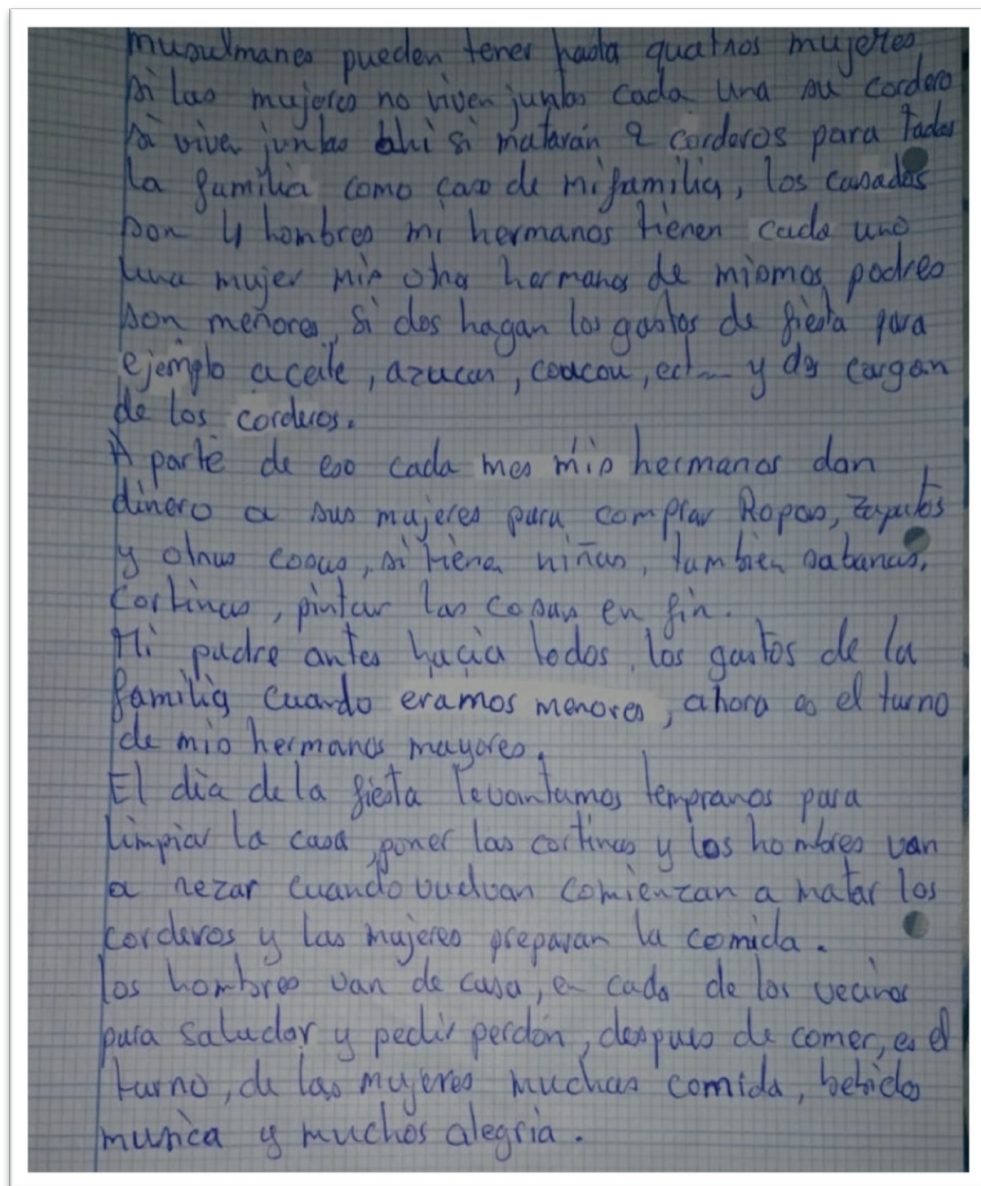 musulmanes pueden tener hasta quatros mujeres
si las mujeres no viven juntas cada una su cordero
si viven juntas ahi si matarán 2 corderos para todos
la familia como caso de mi familia, los casados
son 4 hombres mi hermanos tienen cada uno
una mujer mis otros hermanos de mismos padres
son menores, Si dos hagan los gastos de fiesta para
ejemplo aceite, azucar, coucou, ect... y dos cargan
de los corderos.
A parte de eso cada mes mis hermanos dan
dinero a sus mujeres para comprar Ropas, zapatos
y otras cosas, si tiene niñas, tambien sabanas,
Cortinas, pintar las cosas en fin.
Mi padre antes hacia todos los gastos de la
familia cuando eramos menores, ahora es el turno
de mis hermanos mayores.
El día de la fiesta levantamos tempranos para
limpiar la casa, poner las cortinas y los hombres van
a rezar cuando vuelvan comienzan a matar los
corderos y las mujeres preparan la comida.
los hombres van de casa, en cada de los vecinos
para saludar y pedir perdón, despues de comer, es el
turno, de las mujeres muchas comida, bebida
musica y muchos alegria.